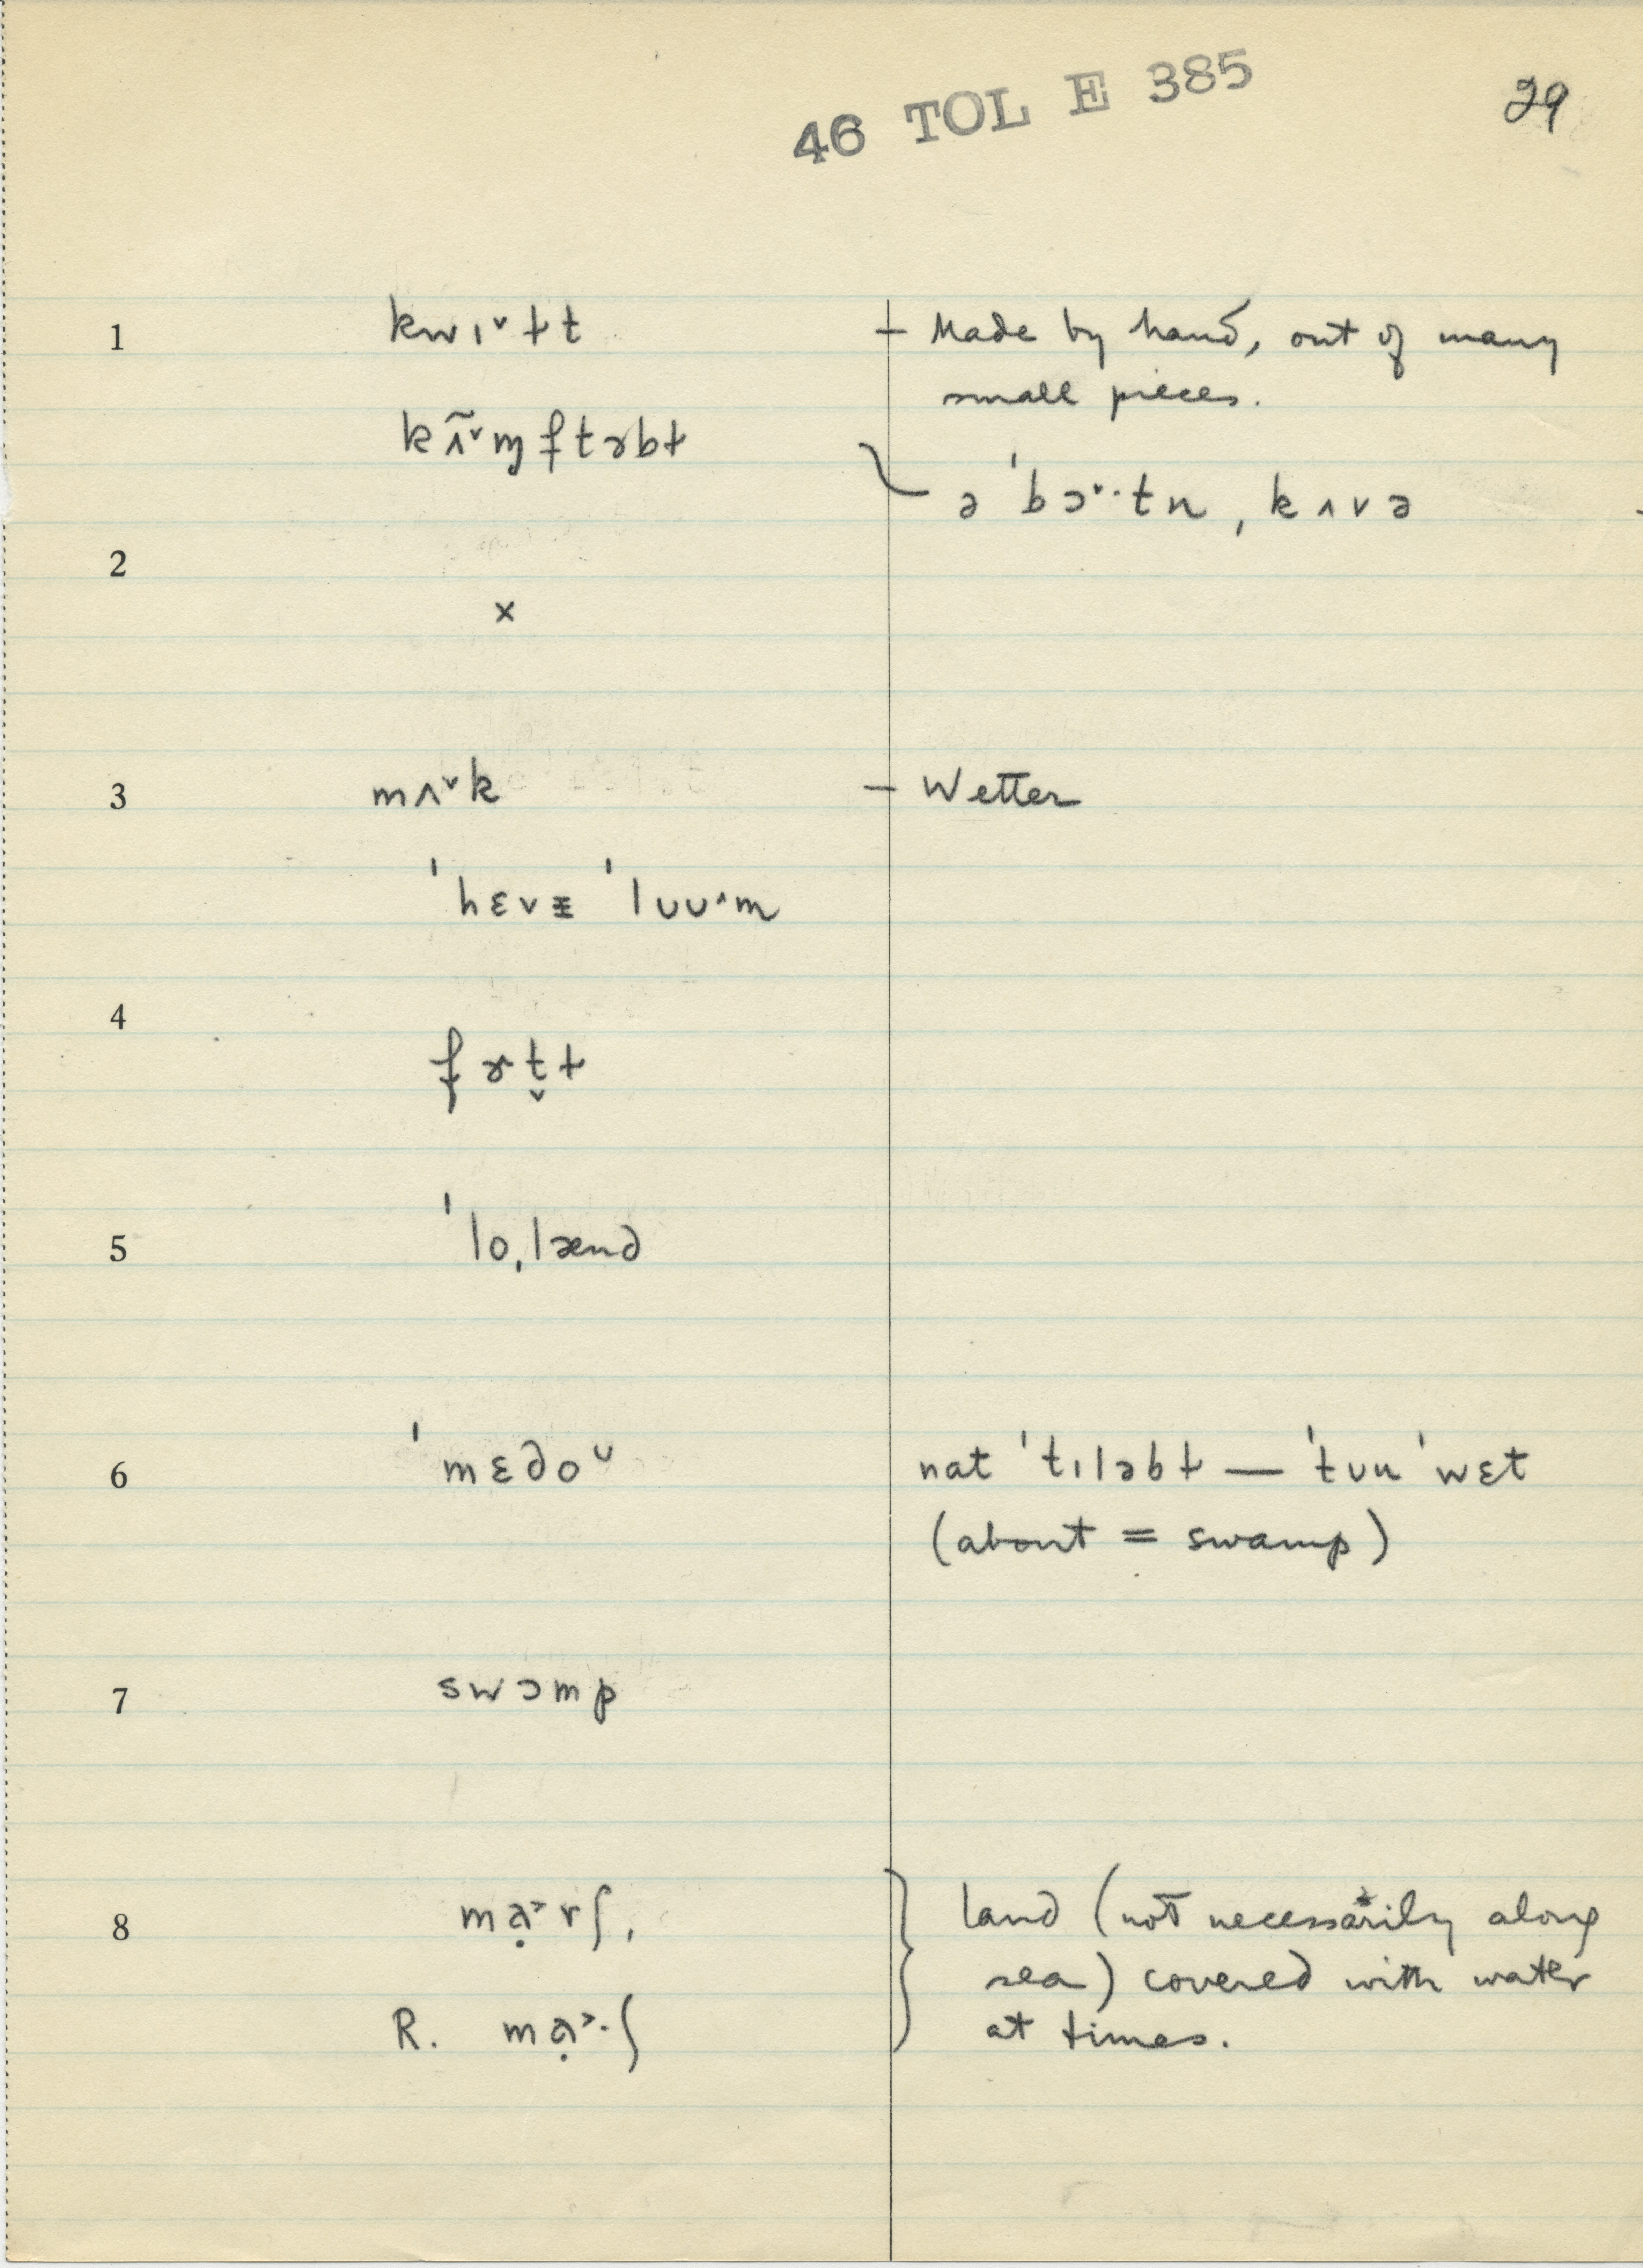 46 TOL E 385
29
1 kwɪˇɫt – Made by hand, out of many
small pieces.
kʌ̃ˇɱftɚbɫ
ə ˈbɔˇ·tn, kʌvə
2
×
3 mʌˇk – Wetter
ˈhɛvɪ ˈlʊuˆm
4
fɚt̬ɫ
5 ˈloˌlænd
6 ˈmɛdoᵕ nat ˈtɪləbɫ — ˈtuu ˈwɛt
(about = swamp)
7 swɔmp
8 mạ˃rʃ, land (not necessarily along
sea) covered with water
R. mạ˃·ʃ at times.